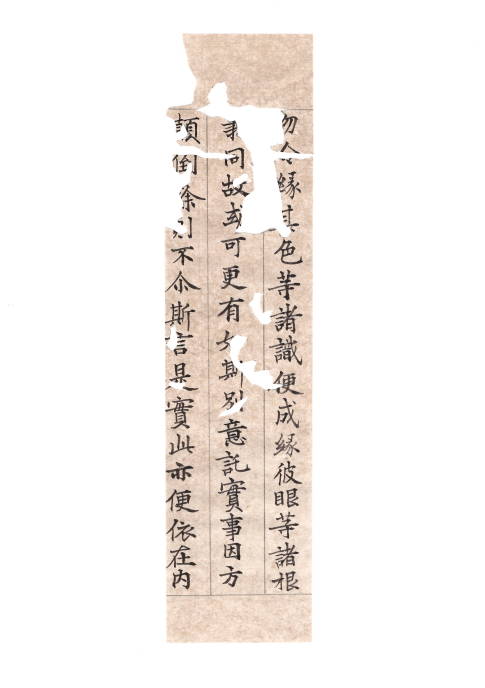 勿令緣其色等諸識便成緣彼眼等諸根
同故或可更有如斯別意託實事因方
顛倒餘則不尒斯言是實此亦便依在内